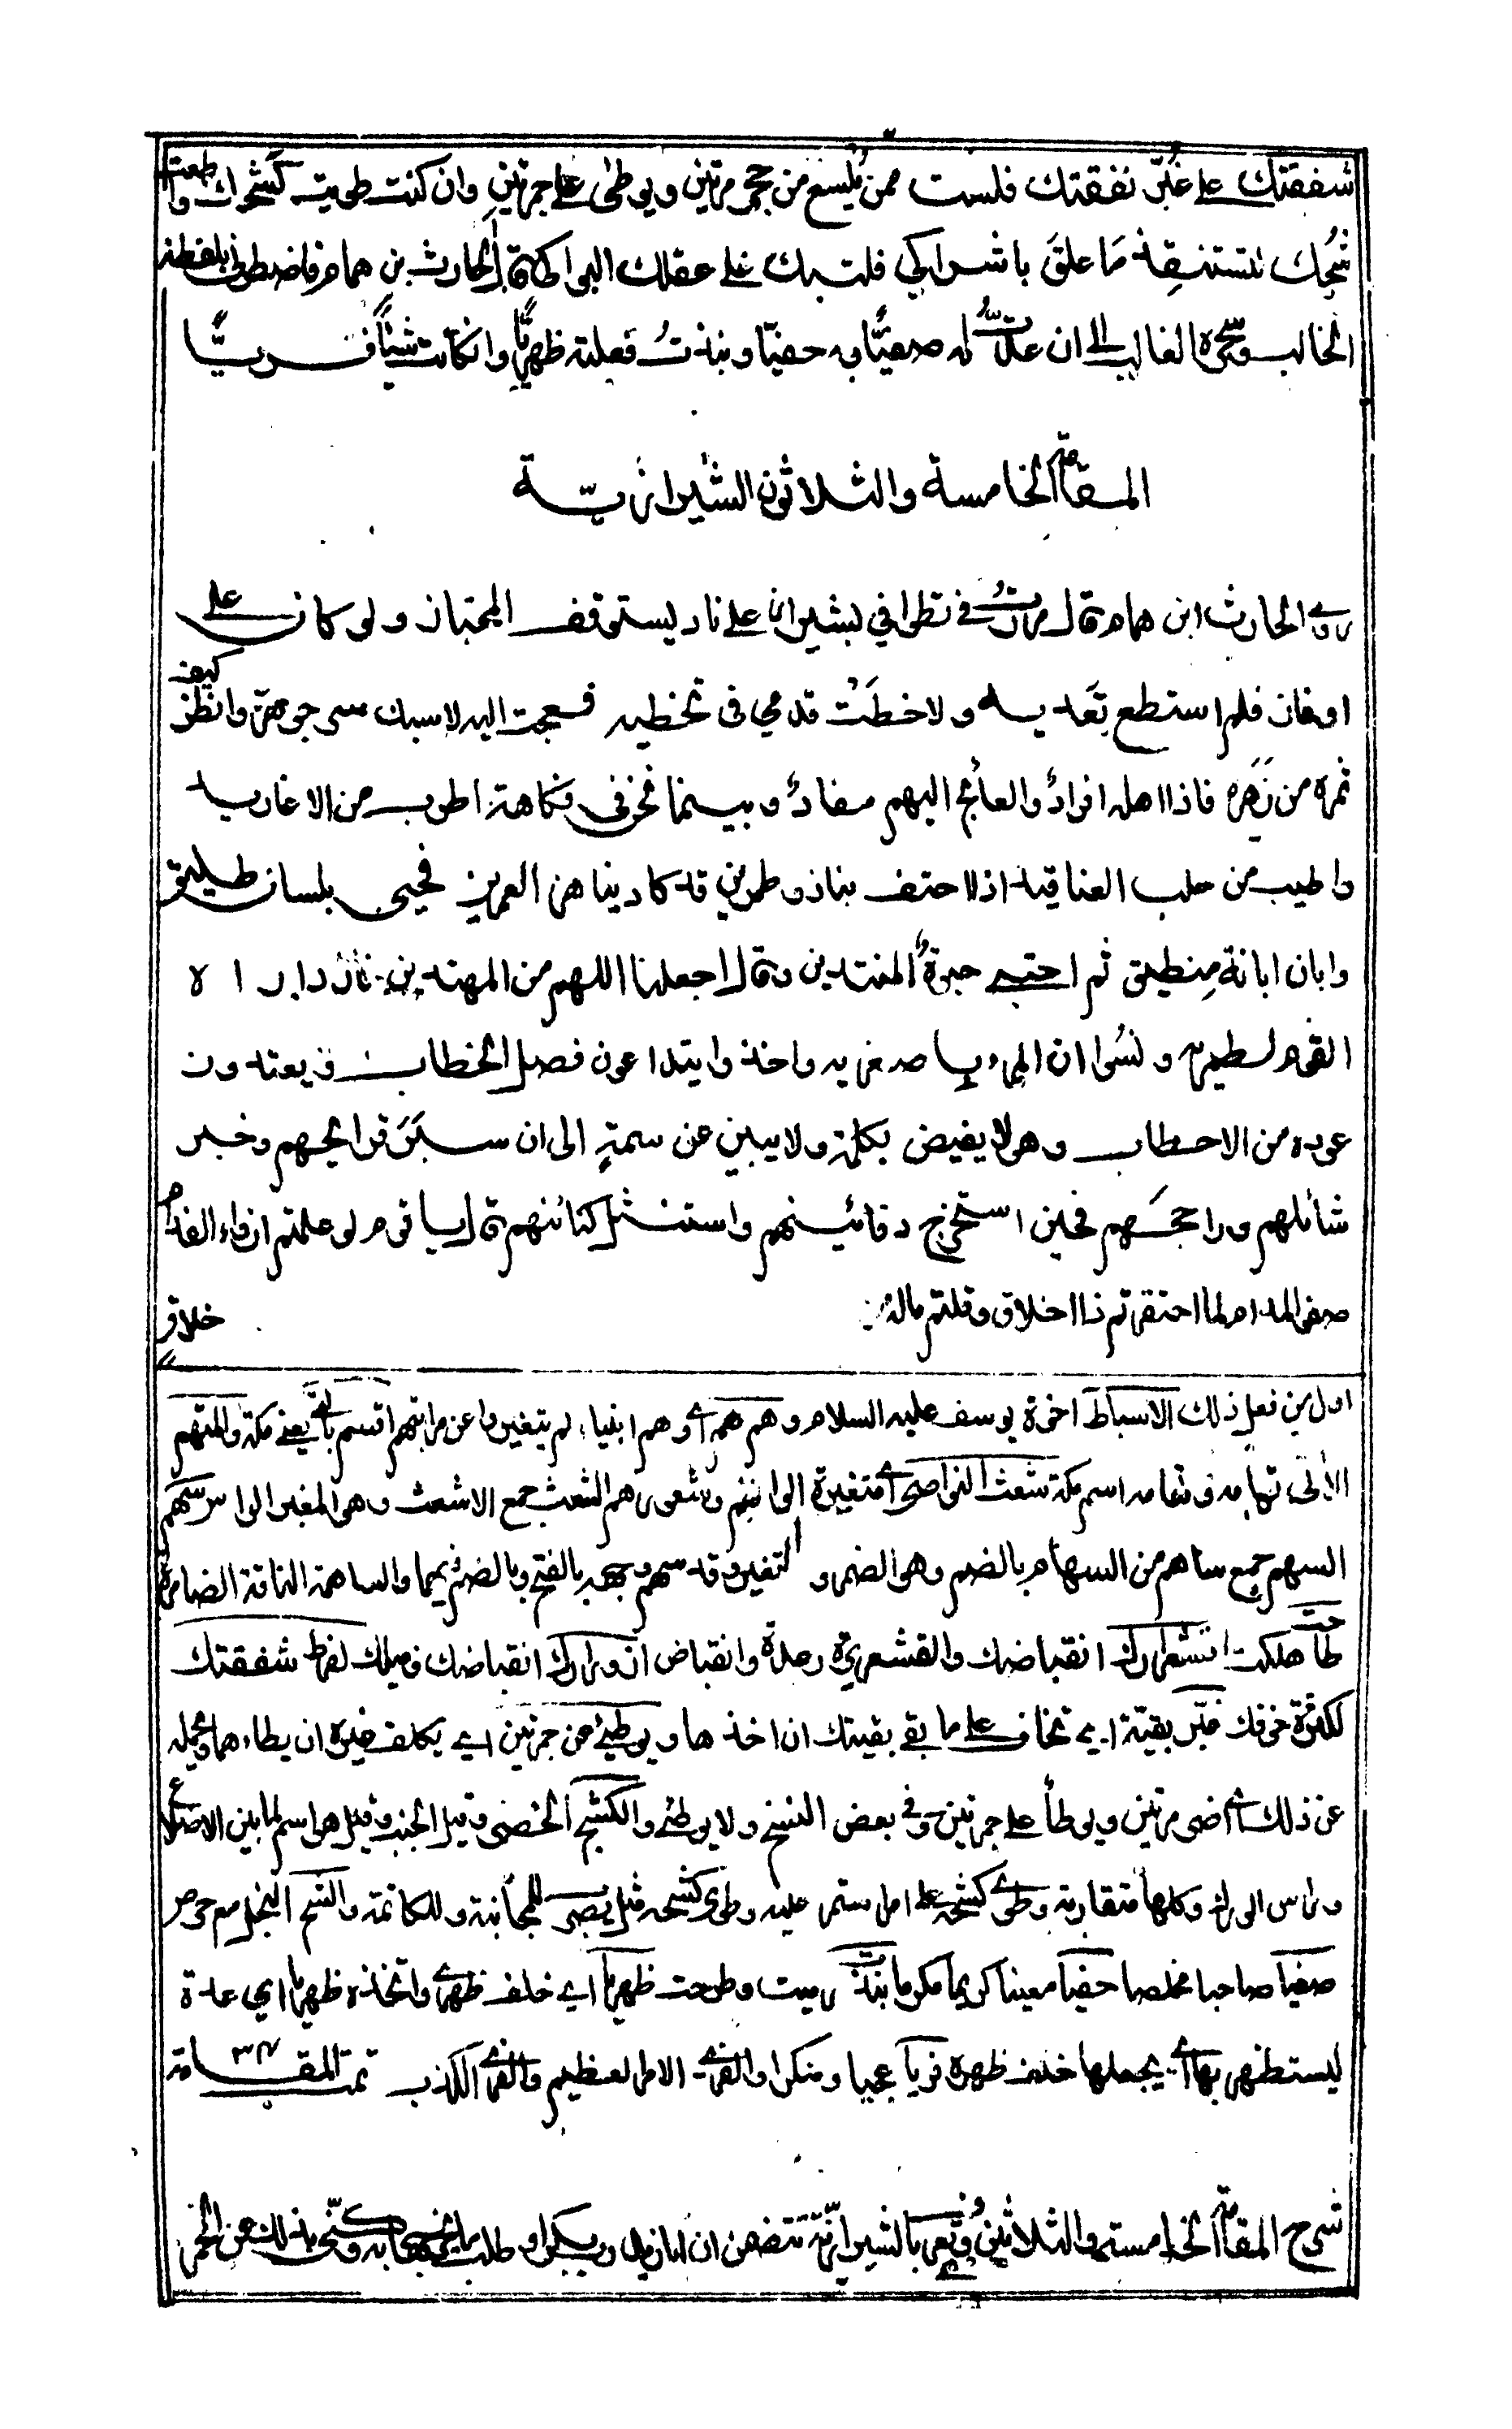 شفقتك على غُبَّر نفقتك فلست ممن يُلسع من جحر مرتين ويوطئ على جمرتين وان كنت طويت كشحك واطعت
شحك لتستنقذ مَا علقَ باشراكي فلتبك على عقلك البواكي قال الحارث بن همام فاضطرني بلفظه
الخالب وسحره الغالب الى ان عدتُّ له صفيًّا وبه حفيّا ونبذتُ فعلته ظهريًّا وان كانت شيئًا فريًّا
المقامة الخامسة والثلاثون الشيرازيّة
روى الحارث ابن همام قال مررتُ في تطوافي بشيراز على ناد يستوقف المجتاز ولو كان على
اوفاز فلم استطع تَعديه ولا خطَتْ قدمي في تخطيه فعجت اليه لاسبك سر جوهره وانظر كيف
ثمره من زَهَره فاذا اهله افرادٌ والعائج اليهم مفادٌ وبينما نحن في فكاهة اطرب من الاغاريد
واطيب من حلب العناقيد اذ لاحتف بنا ذو طمرين قد كاد يناهز العمرين فحيى بلسان طليق
وابان ابانة مِنطيق ثم احتبى حبوةُ المنتدين وقال اجعلنا اللهم من المهتدين فازدراه
القوم لطمريه ونسُوا ان المرء باصغريه واخذوا يتداعون فصل الخطاب ويعتدون
عوده من الاحطاب وهو لا يفيض بكلمة ولا يبين عن سمةٍ الى ان سبَرَ قرائحهم وخبر
شائلهم وراجحَهم فحين استخرج دفائنهم واستنثل كنائنهم قال يا قوم لو علمتم ان وراء الفدام
صفو المدام لما احتقرتم ذا اخلاق وقلتم ماله من خلاق
اول من فعل ذلك الاسباط اخوة يوسف عليه السلام وهم هم اي وهم انبياء لم يتغيروا عن مراتبهم اقسم بالله يعني مكة والمتهم
الآتى تهامه وتهامه اسم مكة شعث النواصي اي متغيرة الوانهم وشعورهم الشعث جمع الاشعث وهو المغبر الراس سهم
السهم جمع ساهم من السهام بالضم وهو الضمر والتغير وقد سهم وجهه بالفتح وبالضم فيهما والساهمة الناقة الضامرة
طاح هلكت اقشعرارك انقباضك والقشعريرة رعدة وانقباض ازورارك انقباضك وميلك لفرط شفقتك
لكثرة خوفك غبّر بقيّة اي تخاف على ما بقي بقيتك ان اخذها ويوطئ عن جمرتين اي يكلف غيره ان يطاءهما ويحمله
عن ذلك اي ارضى مرتين ويوطأ على جمرتين وفي بعض النسخ ولا يوطئ والكشح الخصر وقيل الجنب وقيل هو اسم لما بين الاضلاع
وراس الورك وكلها متقاربة وطوى كشحه على امر استمر عليه وطوى كشحه مثل يضرب للمجانبة وللمكاتمة والشح البخل مع حرص
صفيا صاحبا مخلصا حفيا معينا كريما مكرما نبذت رميت وطرحت ظهريا اي خلف ظهري واتخذه ظهريا اي عدة
ليستظهر بها اي يجعلها خلف ظهره فريا عجيبا ومنكرا والفري الامر العظيم والفري الكذب تمت المقامة ٣٤
شرح المقامة الخامسة والثلاثين وتُعرف بالشيرازيّة تتضمن ان ابا زيد وبكرا وطلب ما يجهز به وكنّى بذلك عن الخمر